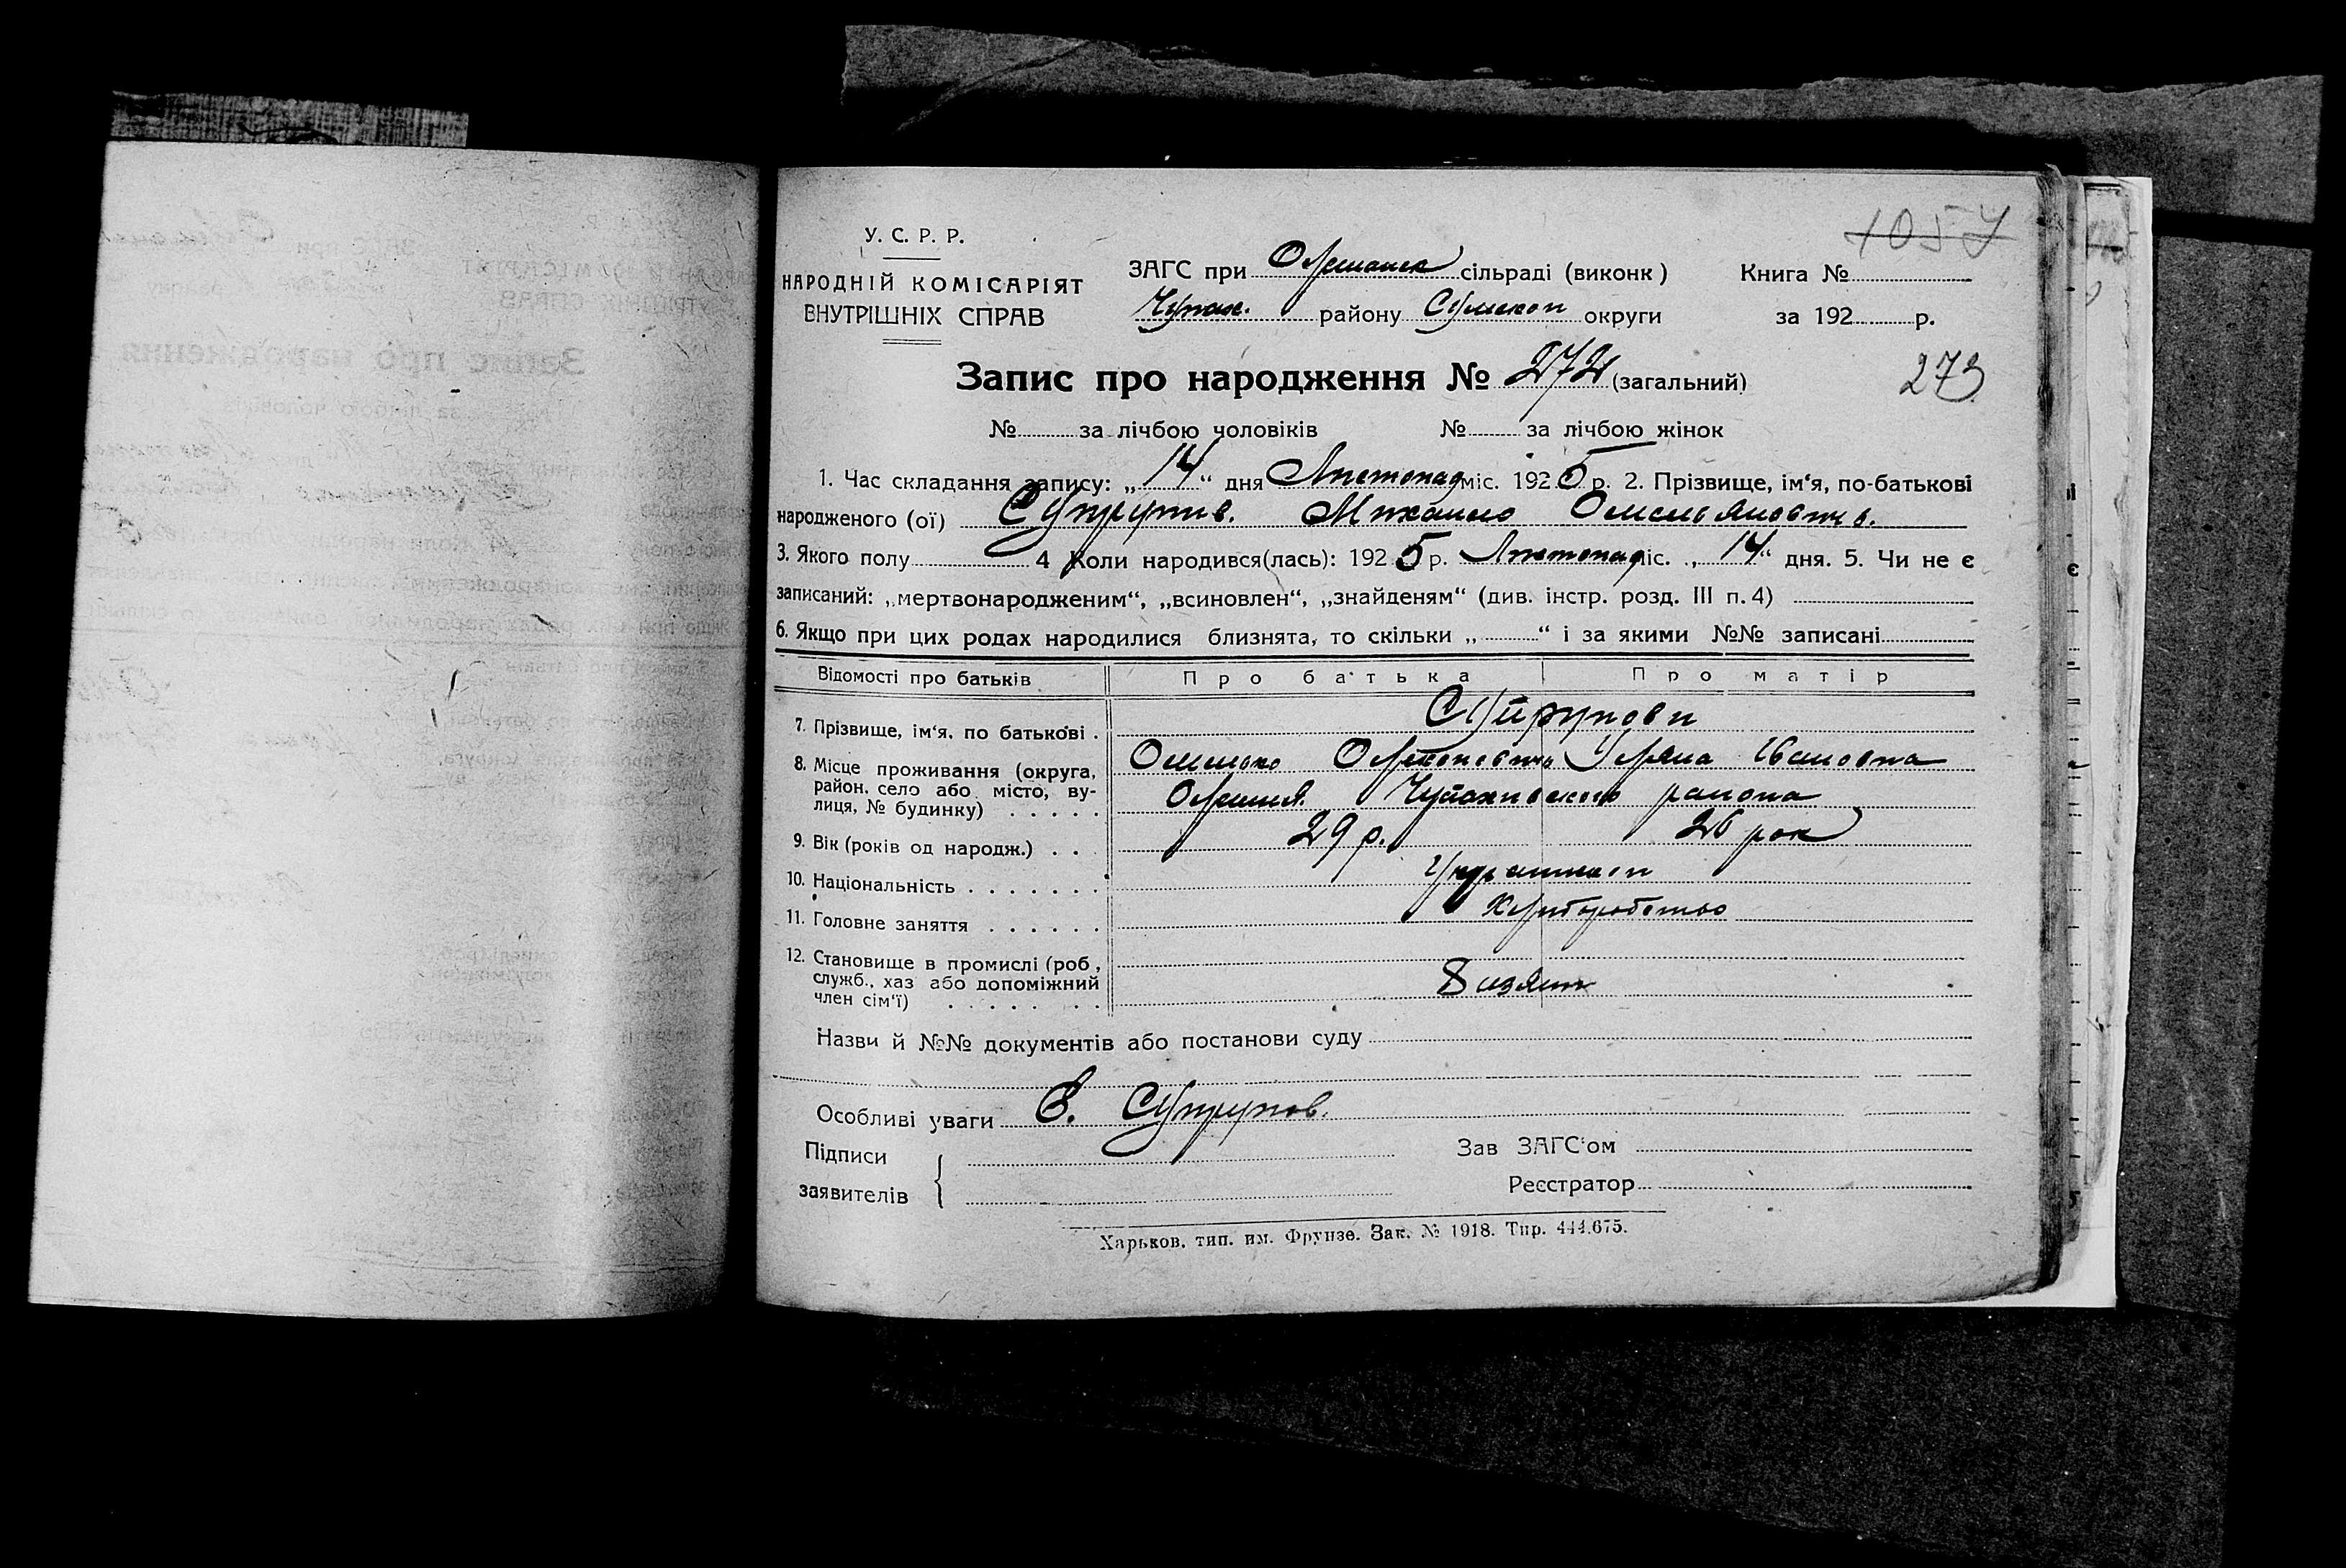 1057
У. С. Р. Р.
НАРОДНІЙ КОМІСАРІЯТ
ВНУТРІШНІХ СПРАВ
ЗАГС при Олешанск сільраді (виконк)
Чупах. району Сумскоп округи
Книга №
за 192 р.
Запис про народження № 272 (загальний)
273
№ за лічбою чоловіків № за лічбою жінок
1. Час складання запису: „14“ дня Лпстопад міс. 1925 р. 2. Прізвище, ім‘я, по-батькові
народженого (ої) Супрунив. Михаило Омельяновичъ.
3. Якого полу 4 Коли народився(лась): 1925 р. Лпстопад міс. „14“ дня. 5. Чи не є
записаний: „мертвонародженим“, „всиновлен“, „знайденям“ (див. інстр. розд. III п. 4)
6. Якщо при цих родах народилися близнята, то скільки „ “ і за якими №№ записані
Відомості про батьків Про батька Про матір
7. Прізвище, ім‘я, по батькові . Супрунови
8. Місце проживання (округа, Омелько Ивановна
район, село або місто, ву-
лиця, № будинку) . . . . . Олешня Чупаховского раиона
9. Вік (років од народж.) . . . 29 р. 26 рок
10. Національність . . . . . . . Украинкоп
11. Головне заняття . . . . . . Хлиборобство
12. Становище в промислі (роб,
служб., хаз або допоміжний
член сім‘ї) . . . . . . .
Назви й №№ документів або постанови суду
Особливі уваги Е. Супрунов.
Підписи
заявителів
Зав ЗАГС‘ом
Реєстратор
Харьков, тип. им. Фрунзе. Зак. № 1918. Тир. 444.675.